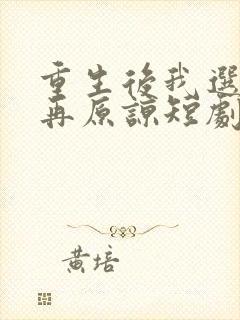 重生後我選
再原諒短劇
黃培